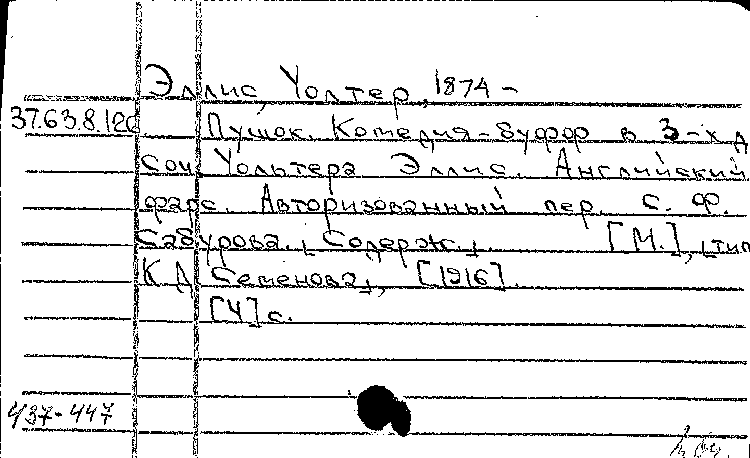 Эллис, Уолтер, 1874 -
37.63.8.126 Пушок. Комедия-буфф в 3-х д
соч. Уольтера Эллис. Английский
фарс. Авторизованный пер. С. Ф.
Сабурова. [Содерж.]. [М.], [тип
К Д Семенова], [1916].
[4] с.
437-447